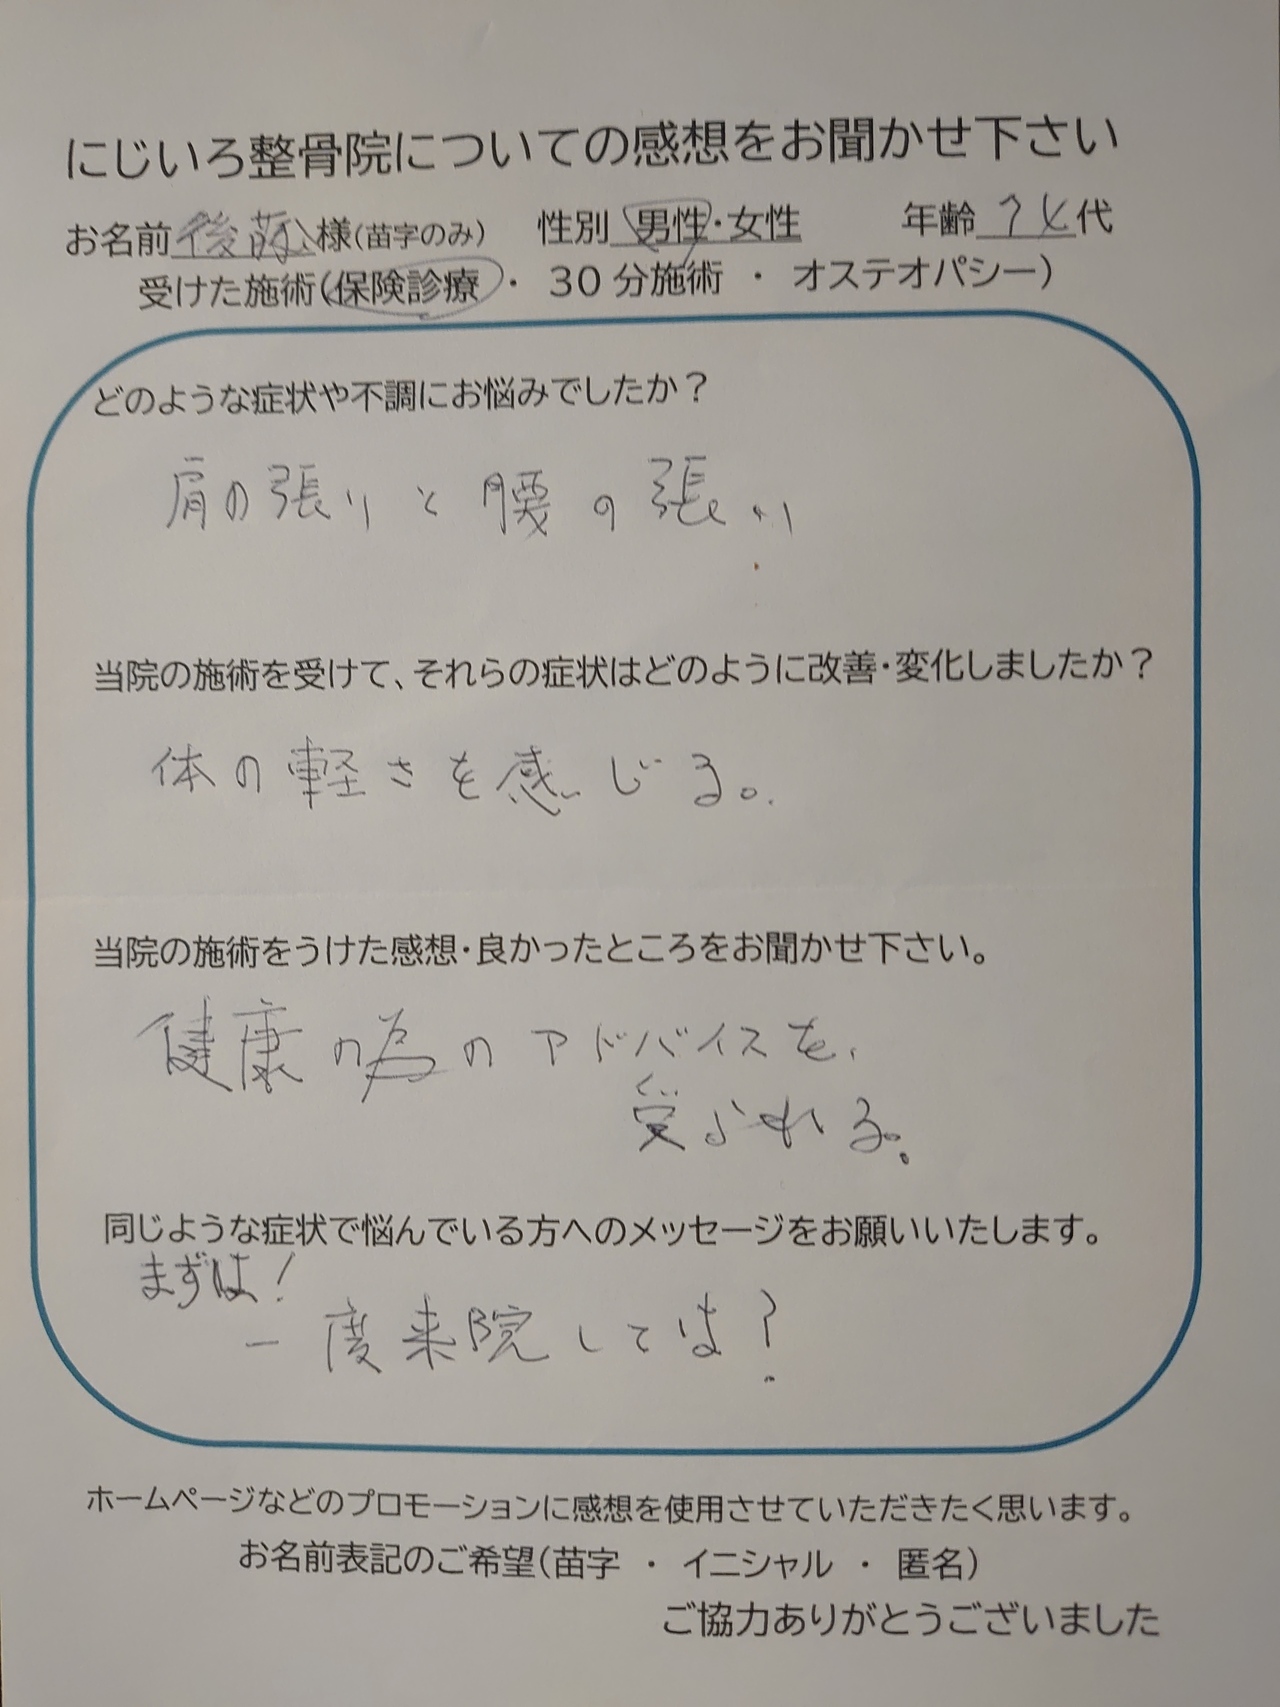 にじいろ整骨院についての感想をお聞かせ下さい
お名前 後藤 様(苗字のみ) 性別 男性・女性 年齢 代
受けた施術(保険診療 ・ 30分施術 ・ オステオパシー)
どのような症状や不調にお悩みでしたか?
肩の張りと腰の張り
当院の施術を受けて、それらの症状はどのように改善・変化しましたか?
体の軽さを感じる。
当院の施術をうけた感想・良かったところをお聞かせ下さい。
健康の為のアドバイスを、
受けれる。
同じような症状で悩んでいる方へのメッセージをお願いいたします。
まずは!
一度来院しては?
ホームページなどのプロモーションに感想を使用させていただきたく思います。
お名前表記のご希望(苗字 ・ イニシャル ・ 匿名)
ご協力ありがとうございました